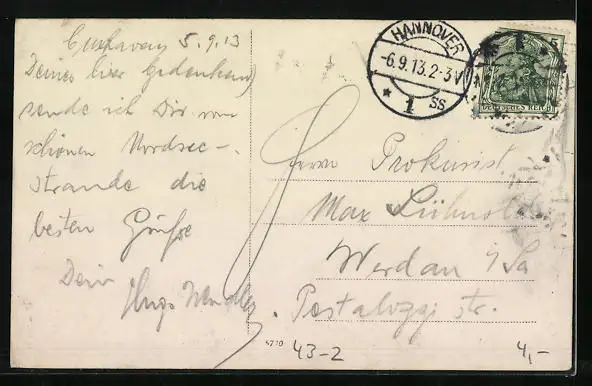 Cuxhaven 5.9.13
Deiner hier gedenkend
sende ich Dir vom
schönen Nordsee-
strande die
besten Grüße
Dein
Hugo
HANNOVER
-6.9.13.2-3V
* 1 SS
5
DEUTSCHES REICH
Herrn Prokurist
Max
Werdau i/Sa
Pestalozzi str.
4710
43-2
4,-